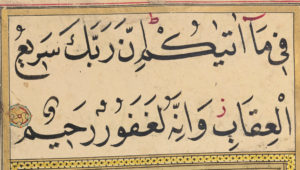 فِي مَا آتٰيكُمْ اِنَّ رَبَّكَ سَرِيعُ
الْعِقَابِ وَاِنَّهُ لَغَفُورٌ رَحِيمٌ